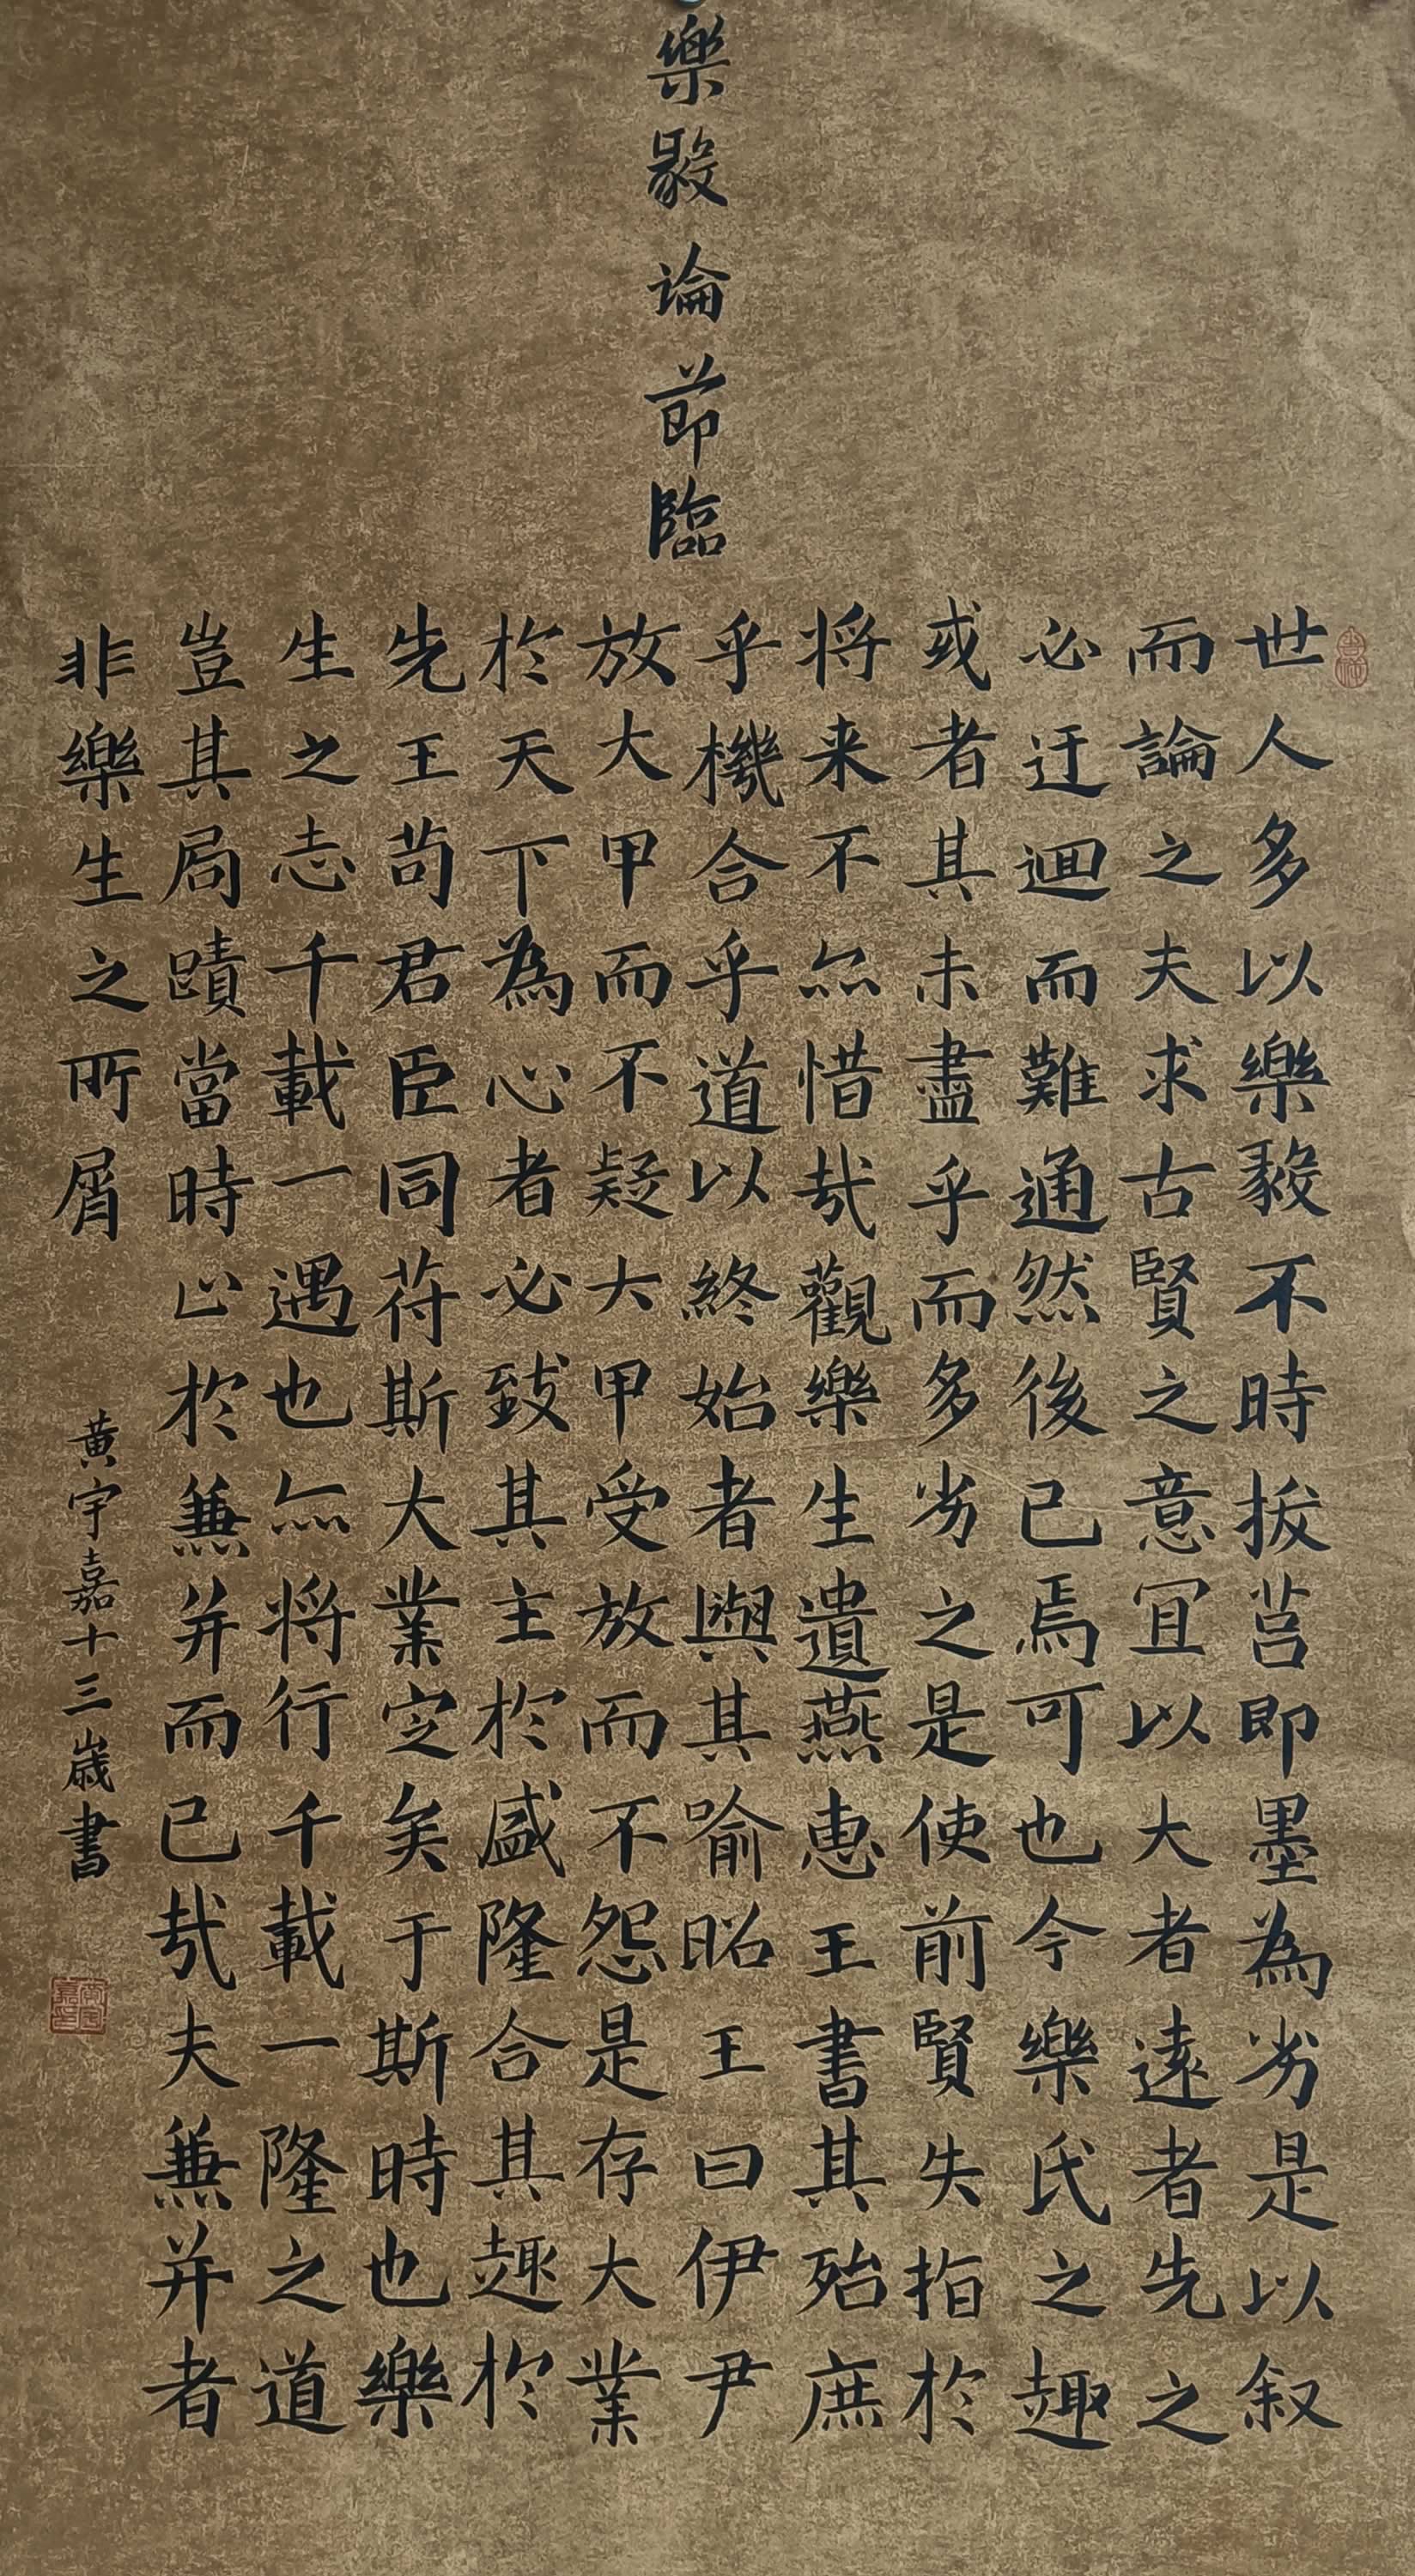 樂毅論節臨
世人多以樂毅不時拔莒即墨為劣是以叙
而論之夫求古賢之意宜以大者遠者先之
必迂迴而難通然後已焉可也今樂氏之趣
或者其未盡乎而多劣之是使前賢失指於
将来不亦惜哉觀樂生遺燕惠王書其殆庶
乎機合乎道以終始者與其喻昭王曰伊尹
放大甲而不疑大甲受放而不怨是存大業
於天下為心者必致其主於盛隆合其趣於
先王苟君臣同符斯大業定矣于斯時也樂
生之志千載一遇也亦将行千載一隆之道
豈其局蹟當時止於兼并而已哉夫兼并者
非樂生之所屑
黄宇嘉十三歲書